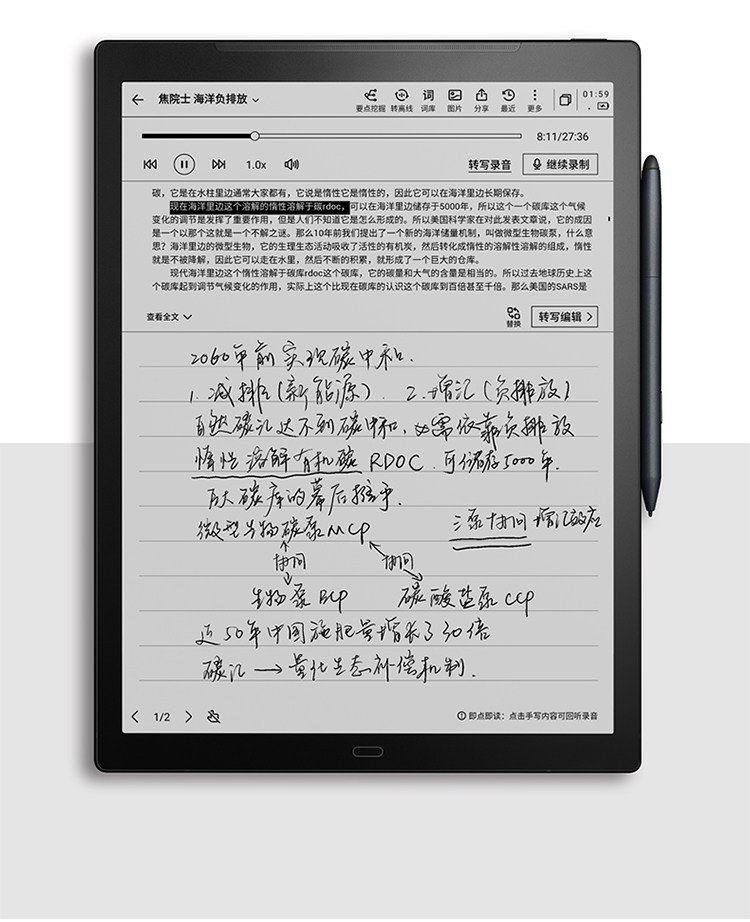 焦院士 海洋负排放
要点挖掘 转离线 词库 图片 分享 最近 更多
01:59
8:11/27:36
1.0x 转写录音 继续录制
碳，它是在水柱里边通常大家都有，它说是惰性它是惰性的，因此它可以在海洋里边长期保存。
现在海洋里边这个溶解的惰性溶解于碳rdoc，可以在海洋里边储存于5000年，所以这个一个碳库这个气候
变化的调节是发挥了重要作用，但是人们不知道它是怎么形成的。所以美国科学家在对此发表文章说，它的成因
是一个以那个这就是一个不解之谜。那么10年前我们提出了一个新的海洋储量机制，叫做微型生物碳泵，什么意
思？海洋里边的微型生物，它的生理生态活动吸收了活性的有机炭，然后转化成惰性的溶解性溶解的组成，惰性
就是不被降解，因此它可以走在水里，然后不断的积累，就形成了一个巨大的仓库。
现代海洋里边这个惰性溶解于碳库rdoc这个碳库，它的碳量和大气的含量是相当的。所以过去地球历史上这
个碳库起到调节气候变化的作用，实际上这个比现在碳库的认识这个碳库到百倍甚至千倍。那么美国的SARS是
查看全文 替换 转写编辑
2060年前实现碳中和.
1. 减排(新能源). 2. 增汇(负排放)
自然碳汇达不到碳中和, 需依靠负排放
惰性溶解有机碳 RDOC. 可储存5000年.
百大碳库的幕后推手.
微型生物碳泵MCP 三泵协同增汇效应
协同 协同
生物泵BCP 碳酸盐泵CCP
近50年中国施肥量增长了30倍
碳汇 → 量化生态补偿机制.
1/2 即点即读：点击手写内容可回听录音